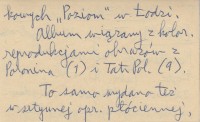 kowych „Poziom" w Łodzi.
Album wiązany z kolor.
reprodukcjami obrazów z
Poronina (1) i Tatr Pol. (9).
To samo wydano też
w sztywnej opr. płóciennej,